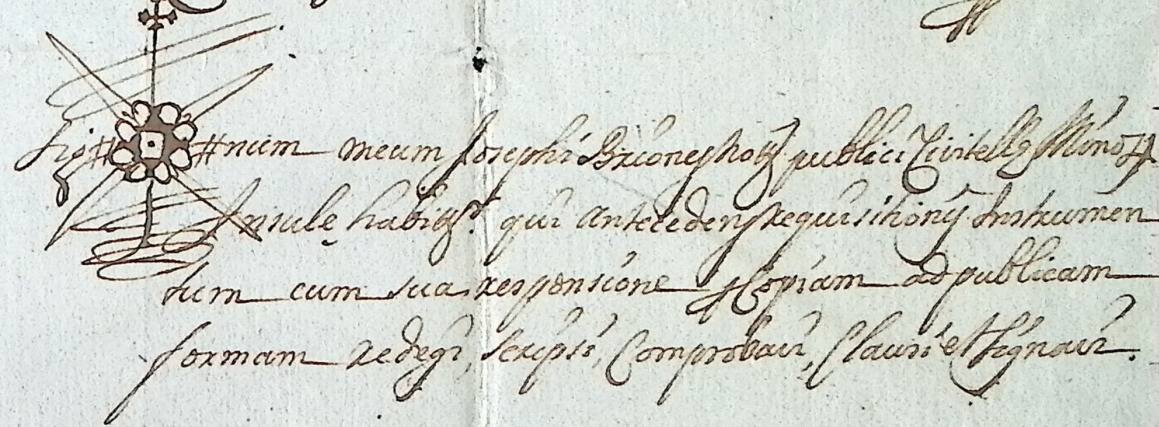 Sig## num meum Josephi Briones not publici Civitelle Minor
Insulę habitr. qui antecedens requisitionis Instrumen
tum cum sua responsione p Copiam ad publicam
formam redegi, scripsi, Comprobavi, Clausi et signavi.